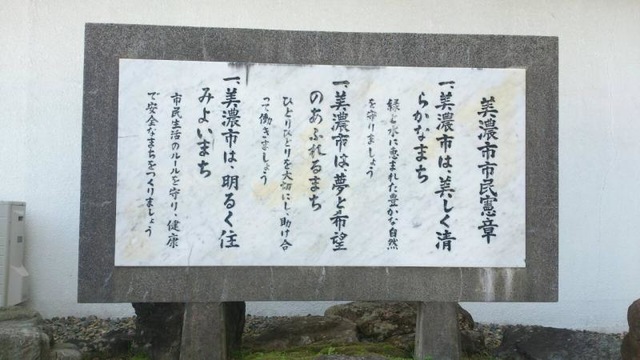 美濃市市民憲章
一、美濃市は、美しく清
らかなまち
緑と水に恵まれた豊かな自然
を守りましょう
一、美濃市は夢と希望
のあふれるまち
ひとりひとりを大切にし、助け合
って働きましょう
一、美濃市は、明るく住
みよいまち
市民生活のルールを守り、健康
で安全なまちをつくりましょう